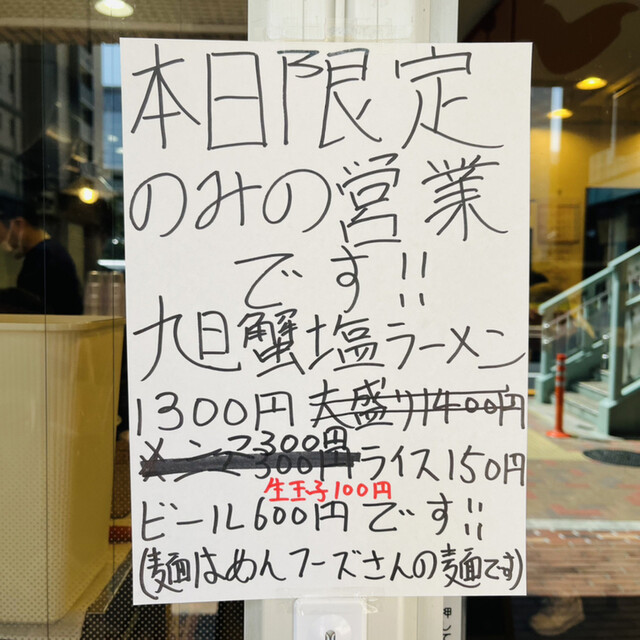 本日限定
のみの営業
です!!
九日蟹塩ラーメン
1300円 大盛り1400円
メンマ300円
メンマ300円 ライス150円
生玉子100円
ビール600円です!!
(麺はめんフーズさんの麺です)
押して